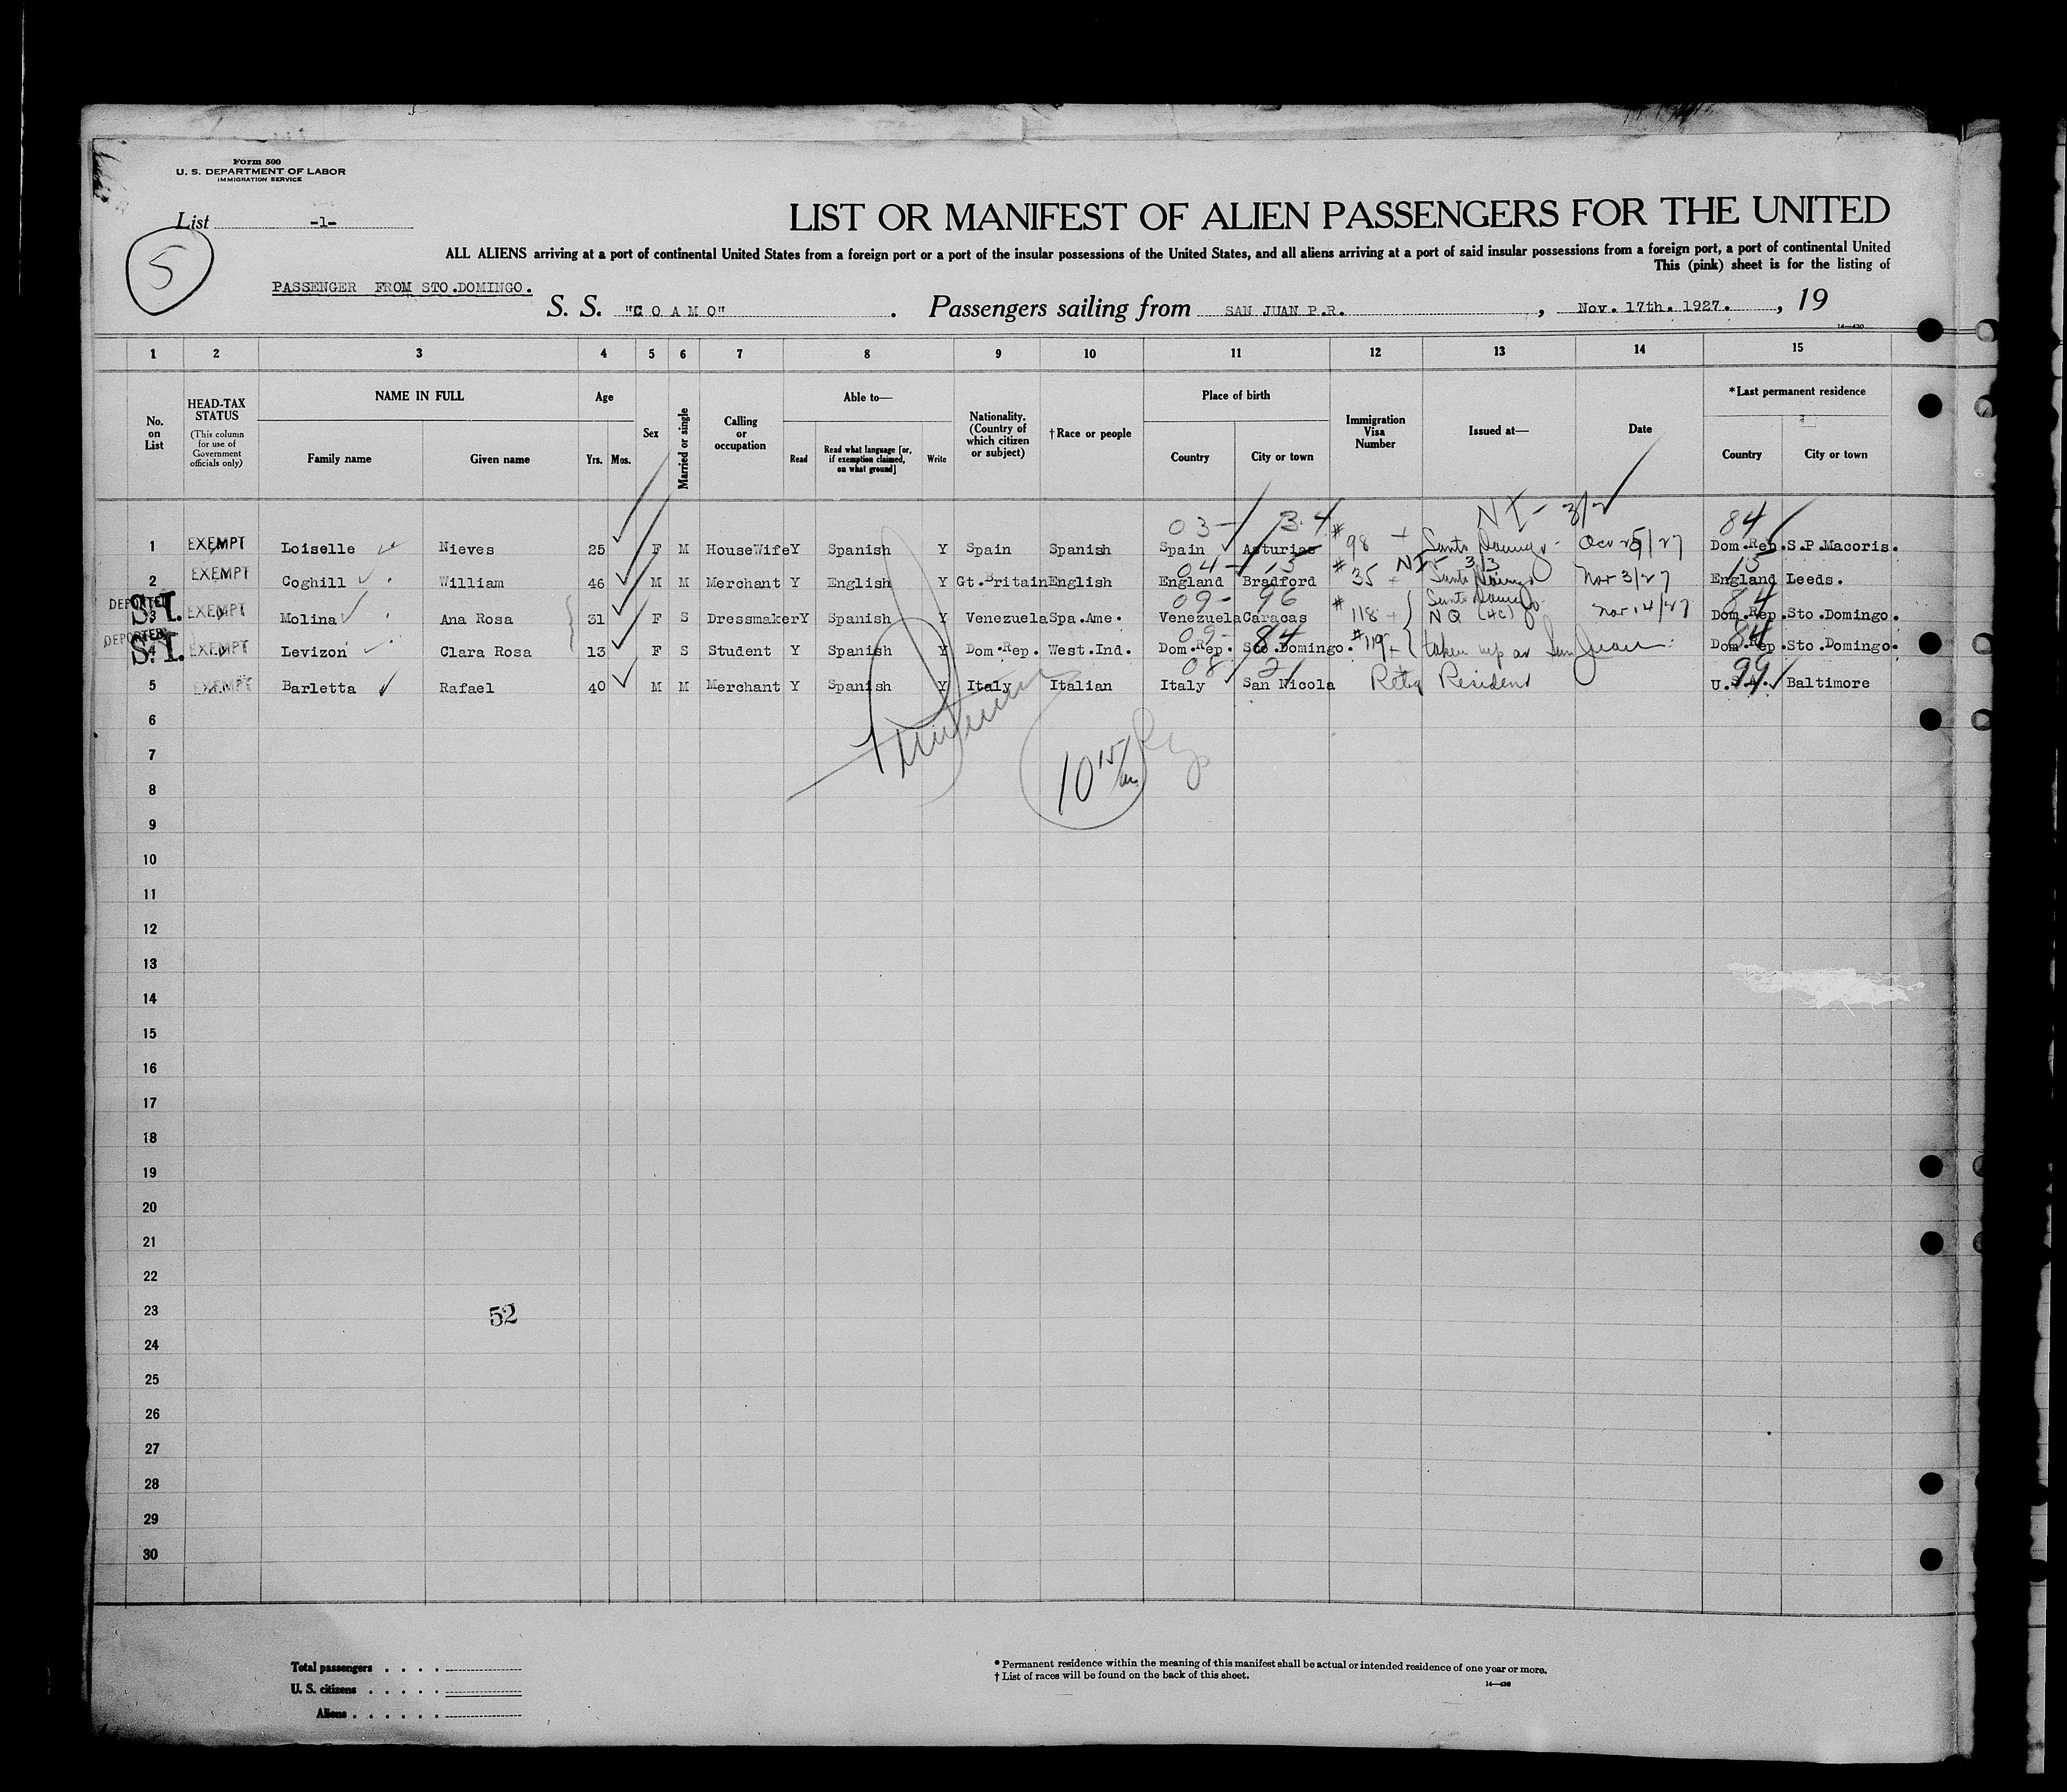 Form 500
U. S. DEPARTMENT OF LABOR
IMMIGRATION SERVICE
List -1-
5
LIST OR MANIFEST OF ALIEN PASSENGERS FOR THE UNITED
ALL ALIENS arriving at a port of continental United States from a foreign port or a port of the insular possessions of the United States, and all aliens arriving at a port of said insular possessions from a foreign port, a port of continental United
This (pink) sheet is for the listing of
PASSENGER FROM STO.DOMINGO.
S. S. "C O A M O" . Passengers sailing from SAN JUAN P.R. , Nov. 17th. 1927. , 19
14—430
1 2 3 4 5 6 7 8 9 10 11 12 13 14 15
No. on List
HEAD-TAX STATUS
(This column for use of Government officials only)
NAME IN FULL
Family name Given name
Age
Yrs. Mos.
Sex
Married or single
Calling or occupation
Able to—
Read
Read what language [or, if exemption claimed, on what ground]
Write
Nationality. (Country of which citizen or subject)
†Race or people
Place of birth
Country City or town
Immigration Visa Number
Issued at—
Date
*Last permanent residence
Country City or town
03- 34 NI- 3/2 84
1 EXEMPT Loiselle Nieves 25 F M HouseWife Y Spanish Y Spain Spanish Spain Asturias #98 Santo Domingo Oct 25/27 Dom.Rep. S.P.Macoris.
04- 15 NI- 3/3 15
2 EXEMPT Coghill William 46 M M Merchant Y English Y Gt.Britain English England Bradford #35 Santo Domingo Nov 3/27 England Leeds.
DEPORTED S.I. 09- 96 84
3 EXEMPT Molina Ana Rosa 31 F S Dressmaker Y Spanish Y Venezuela Spa.Ame. Venezuela Caracas #118 Santo Domingo NQ (4c) Nov 14/27 Dom.Rep. Sto.Domingo.
DEPORTED S.I. 09- 84 84
4 EXEMPT Levizon Clara Rosa 13 F S Student Y Spanish Y Dom.Rep. West.Ind. Dom.Rep. Sto.Domingo. #119 taken up at San Juan Dom.Rep. Sto.Domingo.
08 21 99
5 EXEMPT Barletta Rafael 40 M M Merchant Y Spanish Y Italy Italian Italy San Nicola Retg Resident U.S.A. Baltimore
6
7
10 15/am
8
9
10
11
12
13
14
15
16
17
18
19
20
21
22
23
52
24
25
26
27
28
29
30
Total passengers . . . .
U. S. citizens . . . . .
Aliens . . . . . .
* Permanent residence within the meaning of this manifest shall be actual or intended residence of one year or more.
† List of races will be found on the back of this sheet.
14—430